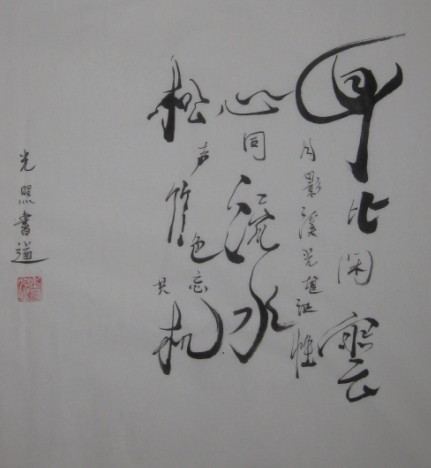 身比闲雲
月影溪光堪证性
心同流水
松声竹色共忘机
光照書道